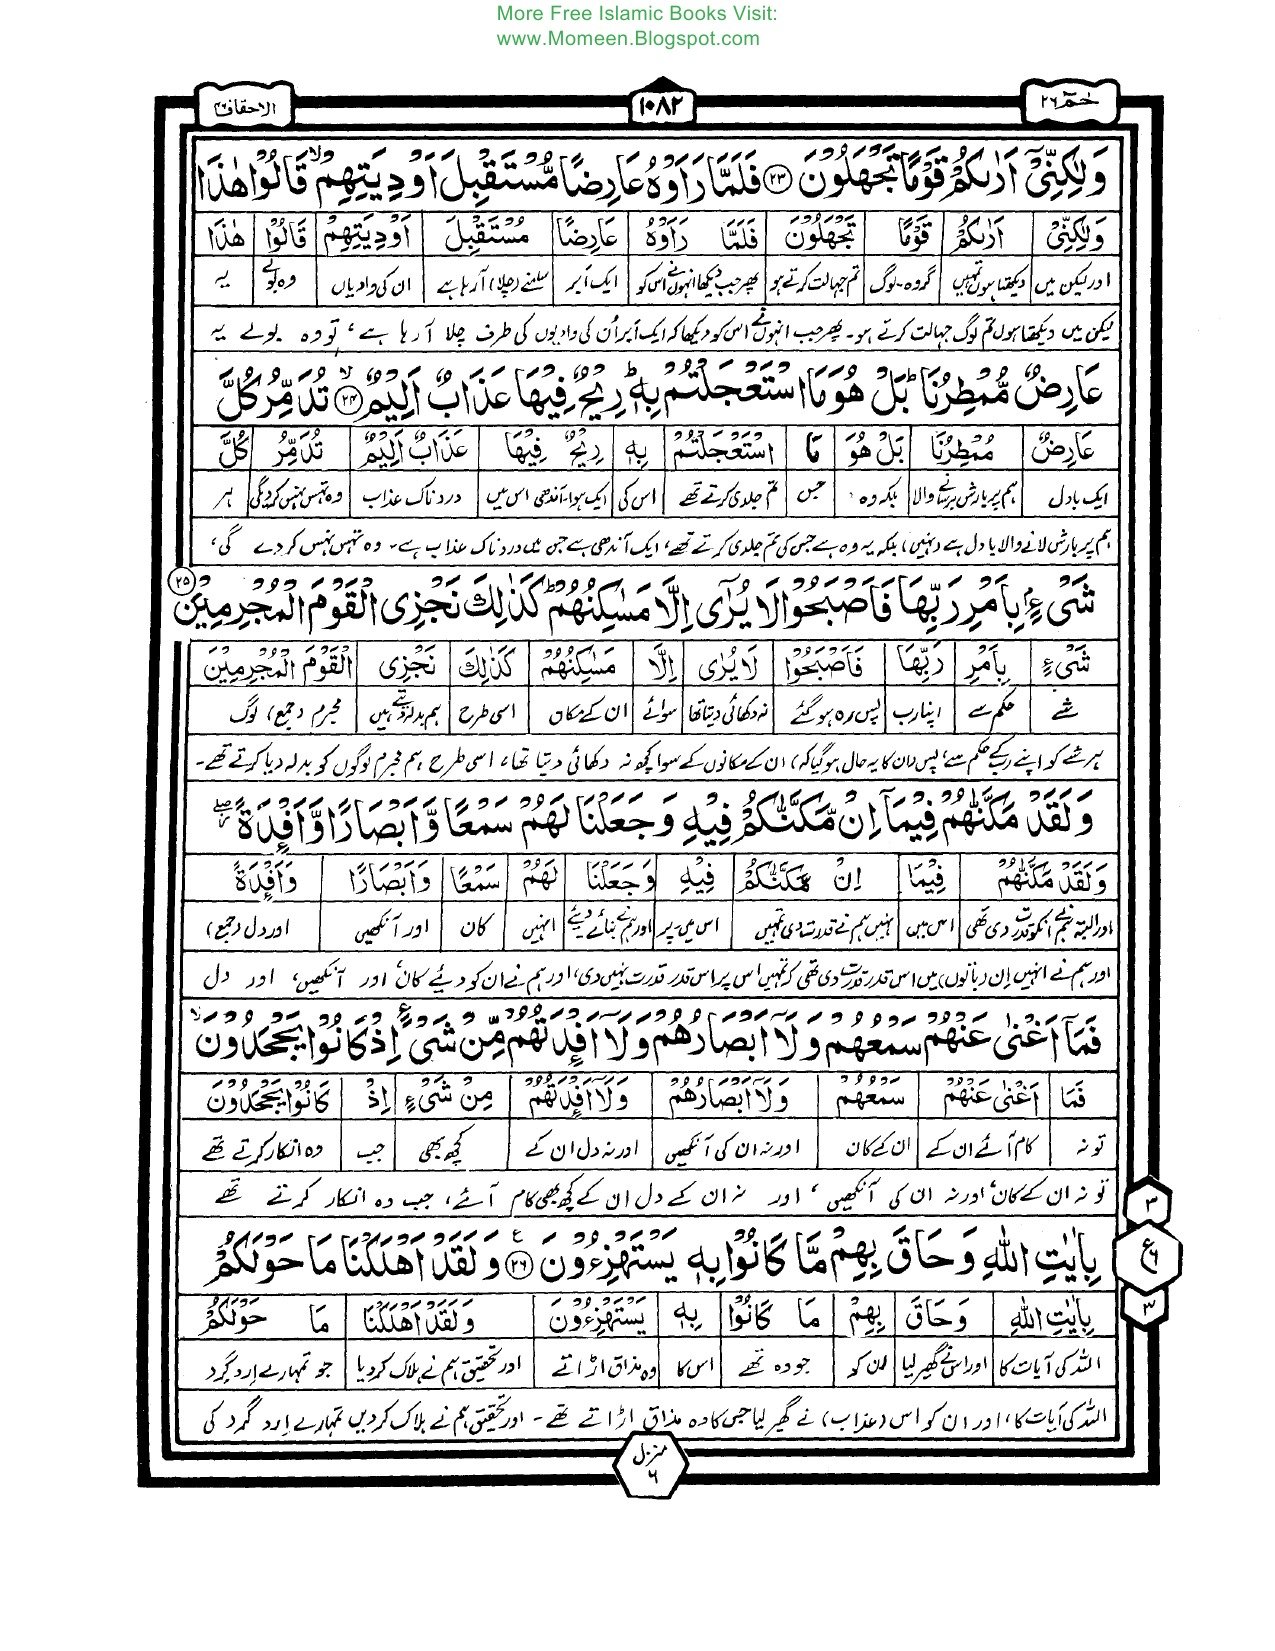 More Free Islamic Books Visit:
www.Momeen.Blogspot.com
حٰمٓ ٢٦
١٠٨٢
الاحقاف ٤٦
وَلٰكِنِّيْٓ اَرٰىكُمْ قَوْمًا تَجْهَلُوْنَ ۝٢٣ فَلَمَّا رَاَوْهُ عَارِضًا مُّسْتَقْبِلَ اَوْدِيَتِهِمْ ۙ قَالُوْا هٰذَا
وَلٰكِنِّيْٓ اَرٰىكُمْ قَوْمًا تَجْهَلُوْنَ فَلَمَّا رَاَوْهُ عَارِضًا مُسْتَقْبِلَ اَوْدِيَتِهِمْ قَالُوْا هٰذَا
اور لیکن میں دیکھتا ہوں تمہیں گروہ۔ لوگ تم جہالت کرتے ہو پھر جب دیکھا انہوں نے اس کو ایک ابر سامنے (چلا) آرہا ہے ان کی وادیاں وہ بولے یہ
لیکن میں دیکھتا ہوں تم لوگ جہالت کرتے ہو۔ پھر جب انہوں نے اس کو دیکھا کہ ایک ابر اُن کی وادیوں کی طرف چلا آ رہا ہے، تو وہ بولے یہ
عَارِضٌ مُّمْطِرُنَا ۭ بَلْ هُوَ مَا اسْتَعْجَلْتُمْ بِهٖ ۭ رِيْحٌ فِيْهَا عَذَابٌ اَلِيْمٌ ۝٢٤ ۙ تُدَمِّرُ كُلَّ
عَارِضٌ مُمْطِرُنَا بَلْ هُوَ مَا اسْتَعْجَلْتُمْ بِهٖ رِيْحٌ فِيْهَا عَذَابٌ اَلِيْمٌ تُدَمِّرُ كُلَّ
ایک بادل ہم پر بارش برسانے والا بلکہ وہ جس تم جلدی کرتے تھے اس کی ایک ہوا۔ آندھی اس میں دردناک عذاب وہ تہس نہس کردیگی ہر
ہم پر بارش لانے والا بادل ہے (نہیں) بلکہ یہ وہ ہے جس کی تم جلدی کرتے تھے، ایک آندھی ہے جس میں دردناک عذاب ہے۔ وہ تہس نہس کر دے گی،
شَيْءٍۢ بِاَمْرِ رَبِّهَا فَاَصْبَحُوْا لَا يُرٰٓى اِلَّا مَسٰكِنُهُمْ ۭ كَذٰلِكَ نَجْزِي الْقَوْمَ الْمُجْرِمِيْنَ ۝٢٥
شَيْءٍ بِاَمْرِ رَبِّهَا فَاَصْبَحُوْا لَا يُرٰى اِلَّا مَسٰكِنُهُمْ كَذٰلِكَ نَجْزِي الْقَوْمَ الْمُجْرِمِيْنَ
شے حکم سے اپنا رب پس وہ ہو گئے نہ دکھائی دیتا تھا سوائے ان کے مکان اسی طرح ہم بدلہ دیتے ہیں مجرم (جمع) لوگ
ہر شے کو اپنے رب کے حکم سے، پس (ان کا یہ حال ہو گیا کہ) ان کے مکانوں کے سوا کچھ نہ دکھائی دیتا تھا، اسی طرح ہم مجرم لوگوں کو بدلہ دیا کرتے تھے۔
وَلَقَدْ مَكَّنّٰهُمْ فِيْمَآ اِنْ مَّكَّنّٰكُمْ فِيْهِ وَجَعَلْنَا لَهُمْ سَمْعًا وَّاَبْصَارًا وَّاَفْـِٕدَةً ۖ
وَلَقَدْ مَكَّنّٰهُمْ فِيْمَا اِنْ مَكَّنّٰكُمْ فِيْهِ وَجَعَلْنَا لَهُمْ سَمْعًا وَاَبْصَارًا وَاَفْـِٕدَةً
اور البتہ ہم نے انکو قدرت دی تھی اس میں نہیں ہم نے قدرت دی تمہیں اس میں۔ پر اور ہم نے بنائے۔ دیئے انہیں کان اور آنکھیں اور دل (جمع)
اور ہم نے انہیں ان (باتوں) میں اس قدر قدرت دی تھی کہ تمہیں اس پر اس قدر قدرت نہیں دی، اور ہم نے ان کو دیئے کان اور آنکھیں، اور دل
فَمَآ اَغْنٰى عَنْهُمْ سَمْعُهُمْ وَلَآ اَبْصَارُهُمْ وَلَآ اَفْـِٕدَتُهُمْ مِّنْ شَيْءٍ اِذْ كَانُوْا يَجْحَدُوْنَ ۙ
فَمَا اَغْنٰى عَنْهُمْ سَمْعُهُمْ وَلَآ اَبْصَارُهُمْ وَلَآ اَفْـِٕدَتُهُمْ مِنْ شَيْءٍ اِذْ كَانُوْا يَجْحَدُوْنَ
تو نہ کام آئے ان کے ان کے کان اور نہ ان کی آنکھیں اور نہ دل ان کے کچھ بھی جب وہ انکار کرتے تھے
تو نہ ان کے کان، اور نہ ان کی آنکھیں، اور نہ ان کے دل ان کے کچھ بھی کام آئے، جب وہ انکار کرتے تھے
بِاٰيٰتِ اللّٰهِ وَحَاقَ بِهِمْ مَّا كَانُوْا بِهٖ يَسْتَهْزِءُوْنَ ۝٢٦ ع وَلَقَدْ اَهْلَكْنَا مَا حَوْلَكُمْ
بِاٰيٰتِ اللّٰهِ وَحَاقَ بِهِمْ مَا كَانُوْا بِهٖ يَسْتَهْزِءُوْنَ وَلَقَدْ اَهْلَكْنَا مَا حَوْلَكُمْ
اللہ کی آیات کا اور اس نے گھیر لیا ان کو جو وہ تھے اس کا وہ مذاق اڑاتے اور تحقیق ہم نے ہلاک کر دیا جو تمہارے ارد گرد
اللہ کی آیات کا، اور ان کو اس (عذاب) نے گھیر لیا جس کا وہ مذاق اڑاتے تھے۔ اور تحقیق ہم نے ہلاک کر دیں تمہارے ارد گرد کی
٣
ع ٦
٣
منزل ٦